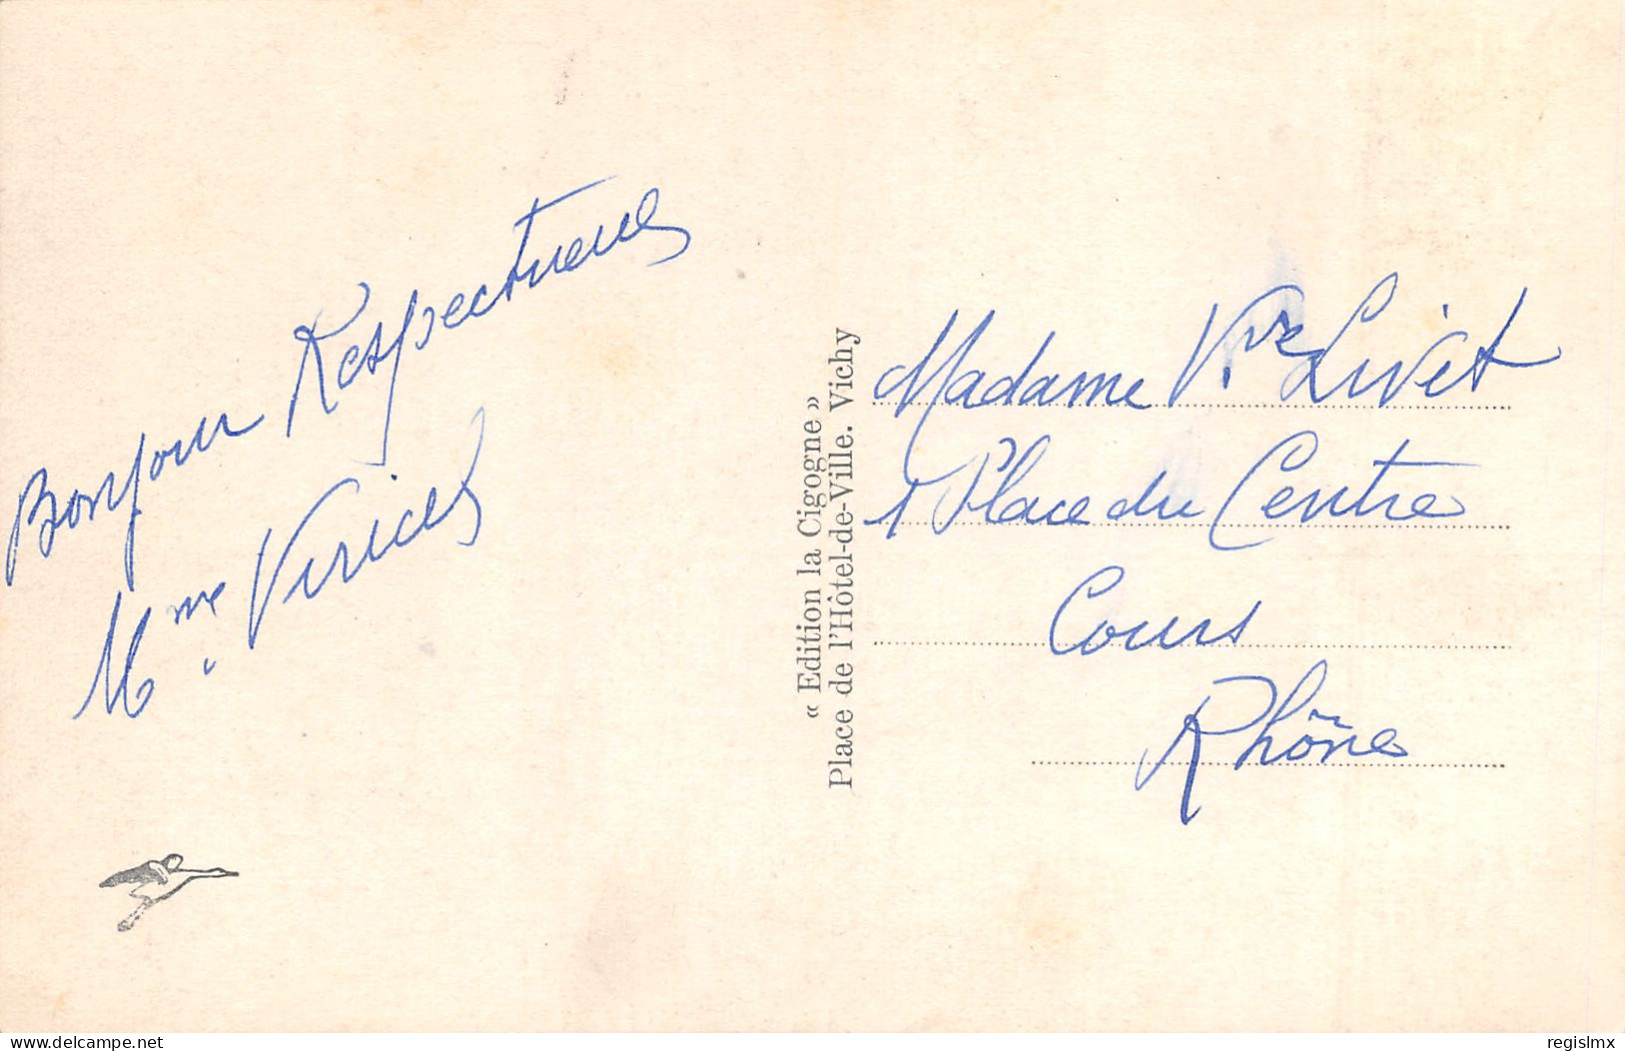 Bonjour Respectueux
Mme Viricel
« Edition la Cigogne »
Place de l'Hôtel-de-Ville. Vichy
Madame Vve Livet
1 Place du Centre
Cours
Rhône
delcampe.net
regislmx